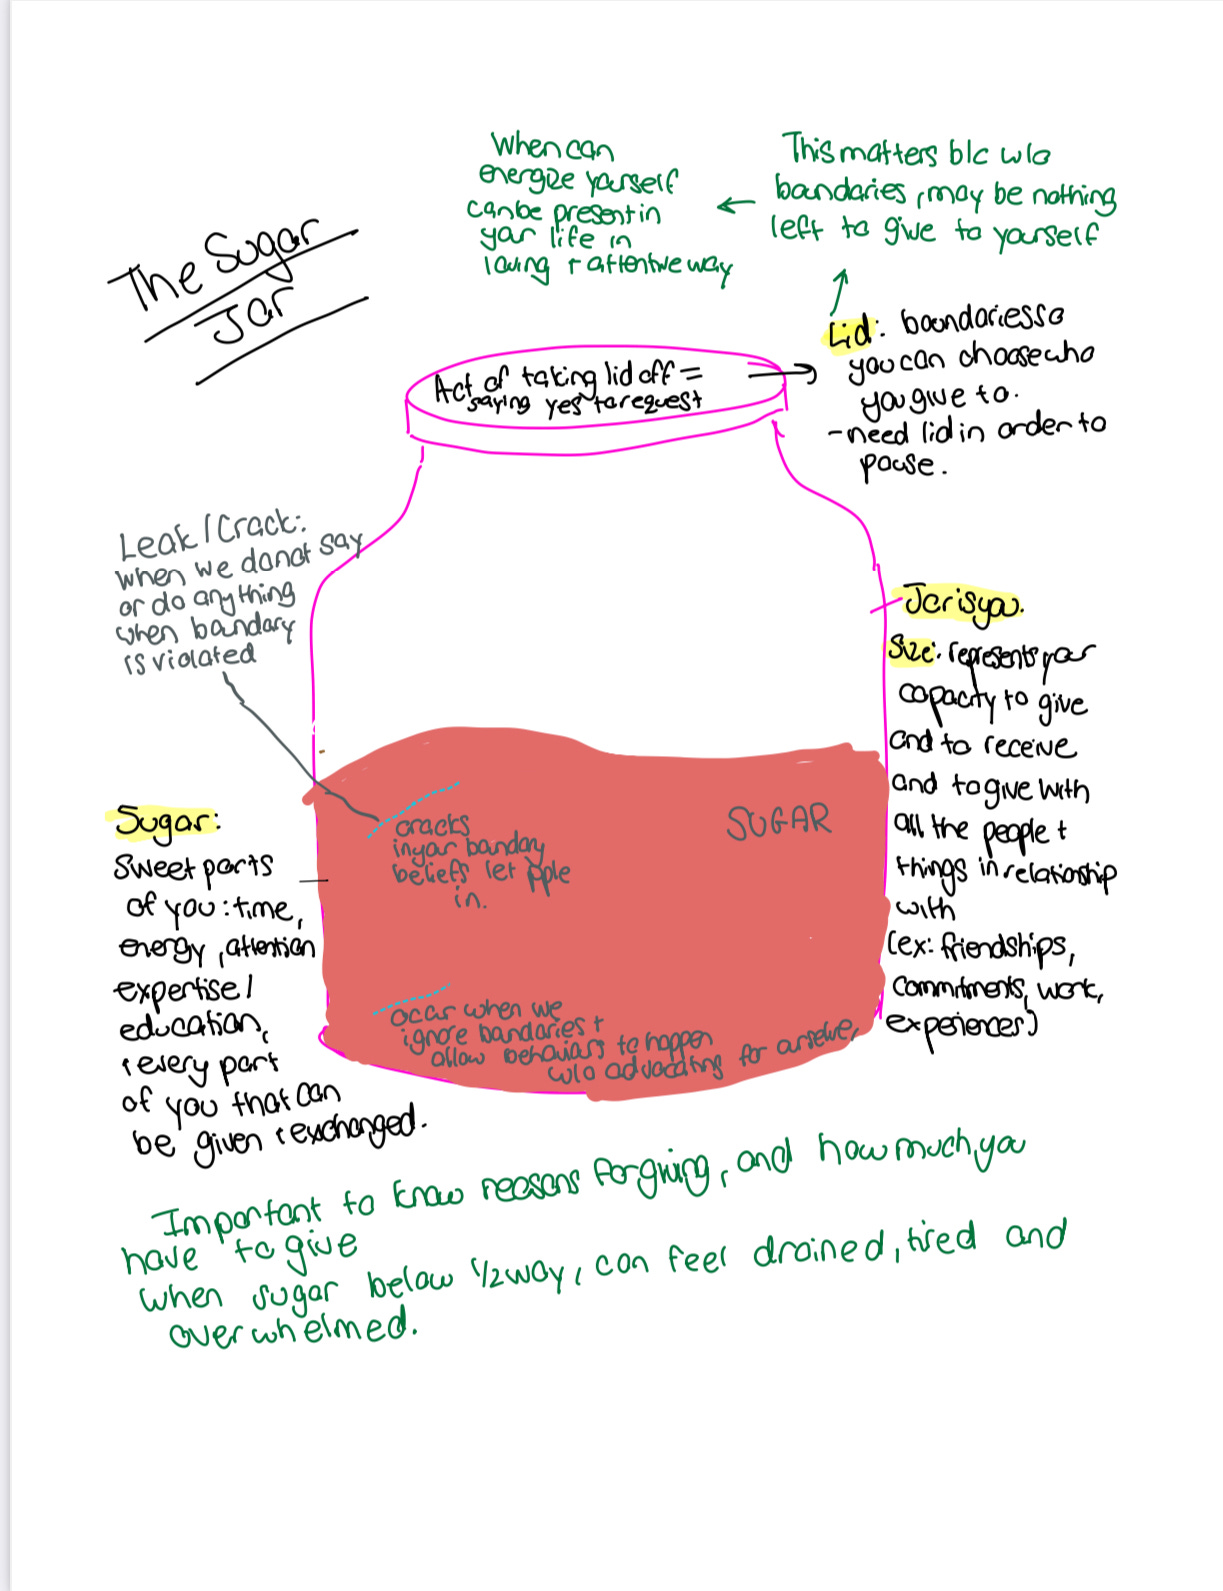 The Sugar
Jar
When can
energize yourself
can be present in
your life in
loving + attentive way
This matters b/c w/o
boundaries, may be nothing
left to give to yourself
Lid: boundaries so
you can choose who
you give to.
- need lid in order to
pause.
Act of taking lid off =
saying yes to request
Leak/Crack:
when we do not say
or do anything
when boundary
is violated
Jar is you.
Size: represents your
capacity to give
and to receive
and to give with
all the people +
things in relationship
with
(ex: friendships,
commitments, work,
experiences)
Sugar:
Sweet parts
of you: time,
energy, attention
expertise/
education,
+ every part
of you that can
be given + exchanged.
SUGAR
cracks
in your boundary
beliefs let pple
in.
occur when we
ignore boundaries +
allow behaviors to happen
w/o advocating for ourselves
Important to know reasons for giving, and how much you
have to give
when sugar below 1/2 way, can feel drained, tired and
overwhelmed.